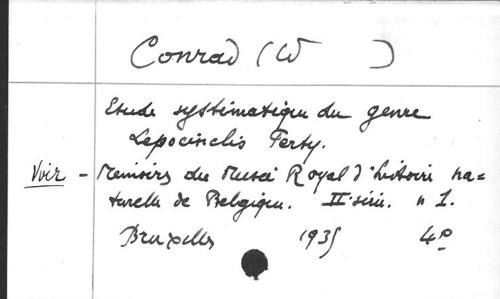 Conrad (W )
Etude systématique du genre
Lepocinclis Perty.
Voir - Memoires du Musée Royal d'histoire na-
turelle de Belgique. II série. n 1.
Bruxelles 1935 4º